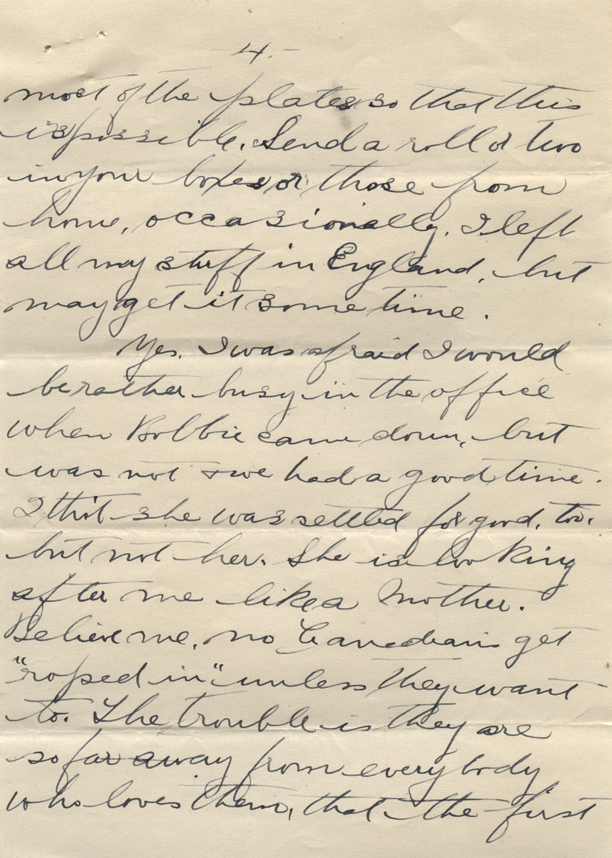 -4.-
most of the plates so that this
is possible. Send a roll or two
in your boxes or those from
home, occasionally. I left
all my stuff in England, but
may get it some time.
Yes. I was afraid I would
be rather busy in the office
when Bobbie came down, but
was not & we had a good time.
I thot she was settled for good, too.
but not her. She is looking
after me like a Mother.
Believe me, no Canadians get
"roped in" unless they want
to. The trouble is they are
so far away from everybody
who loves them, that the first